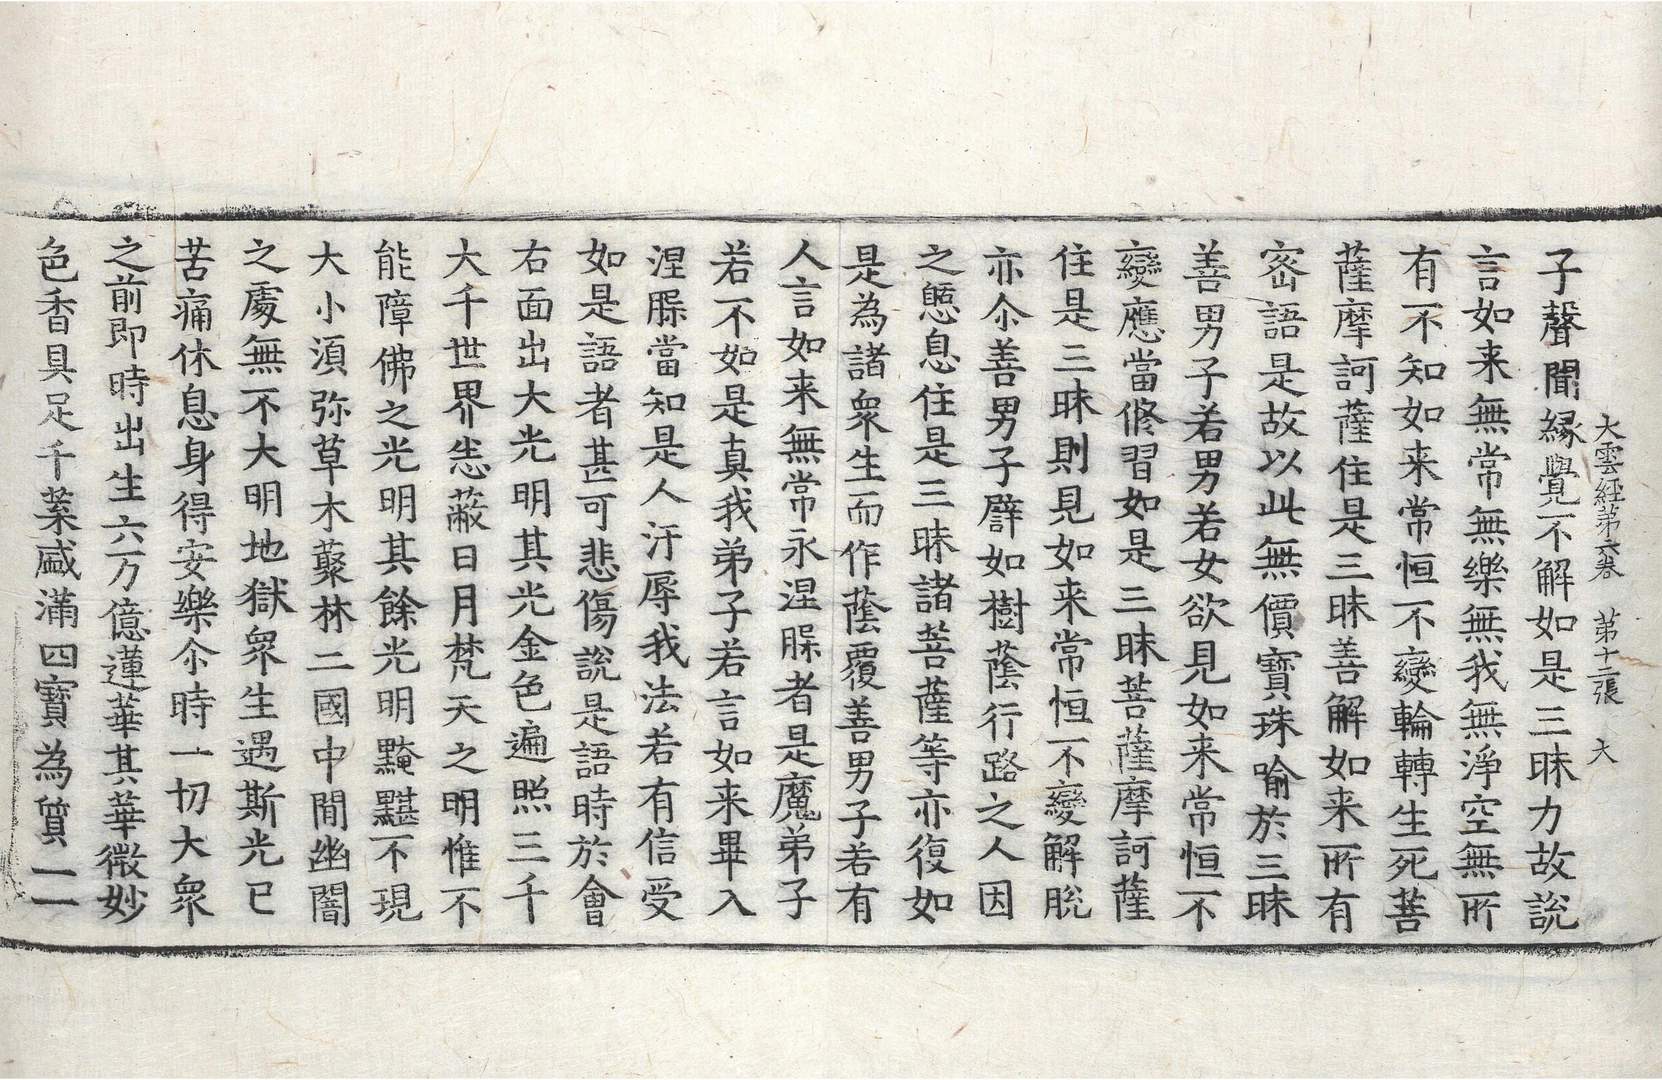 大雲經第六卷 第十二張 大
子聲聞緣覺不解如是三昧力故說
言如来無常無樂無我無淨空無所
有不知如来常恒不變輪轉生死菩
薩摩訶薩住是三昧善解如来所有
密語是故以此無價寶珠喻於三昧
善男子若男若女欲見如来常恒不
變應當修習如是三昧菩薩摩訶薩
住是三昧則見如来常恒不變解脫
亦尒善男子譬如樹蔭行路之人因
之憩息住是三昧諸菩薩等亦復如
是為諸衆生而作蔭覆善男子若有
人言如来無常永涅槃者是魔弟子
若不如是真我弟子若言如来畢入
涅槃當知是人汙辱我法若有信受
如是語者甚可悲傷說是語時於會
右面出大光明其光金色遍照三千
大千世界悉蔽日月梵天之明惟不
能障佛之光明其餘光明黤黮不現
大小湏弥草木藂林二國中間幽闇
之處無不大明地獄衆生遇斯光已
苦痛休息身得安樂尒時一切大衆
之前即時出生六万億蓮華其華微妙
色香具足千葉盛滿四寶為質一一